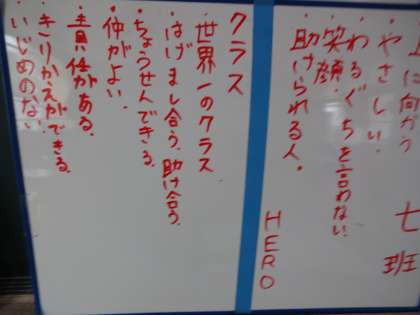 に向かう
七班
・やさしい
・わるぐちを言わない
・笑顔
・助けられる人。
HERO
クラス
・世界一のクラス
・はげまし合う、助け合う
・ちょうせんできる
・仲がよい、
・責任がある。
・きりかえができる
・いじめのない